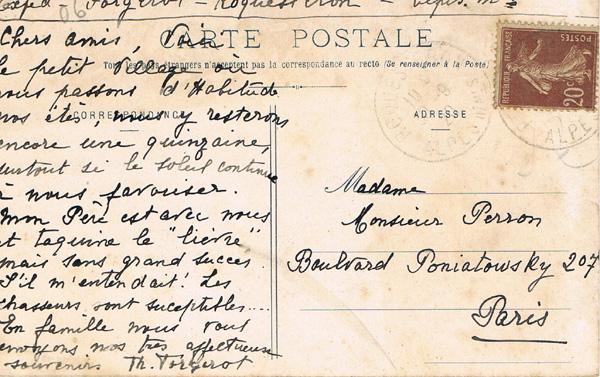 Exped - Forgerot - Roquesteron - Alpes. Mmes
Chers amis, Voici
CARTE POSTALE
Tous les pays étrangers n'acceptent pas la correspondance au recto (Se renseigner à la Poste)
le petit Village où
nous passons d'Habitude
CORRESPONDANCE
nos étés, nous y resterons
encore une quinzaine,
surtout si le soleil continue
à nous favoriser.
Mon Père est avec nous
et taquine le "lièvre"
mais sans grand succès
S'il m'entendait! Les
chasseurs sont suceptibles....
En famille nous vous
envoyons nos très affectueux
souvenirs Th. Forgerot
ADRESSE
Madame
Monsieur Perron
Boulvard Poniatowsky 207
Paris
REPUBLIQUE FRANÇAISE
POSTES
20c
ALPE